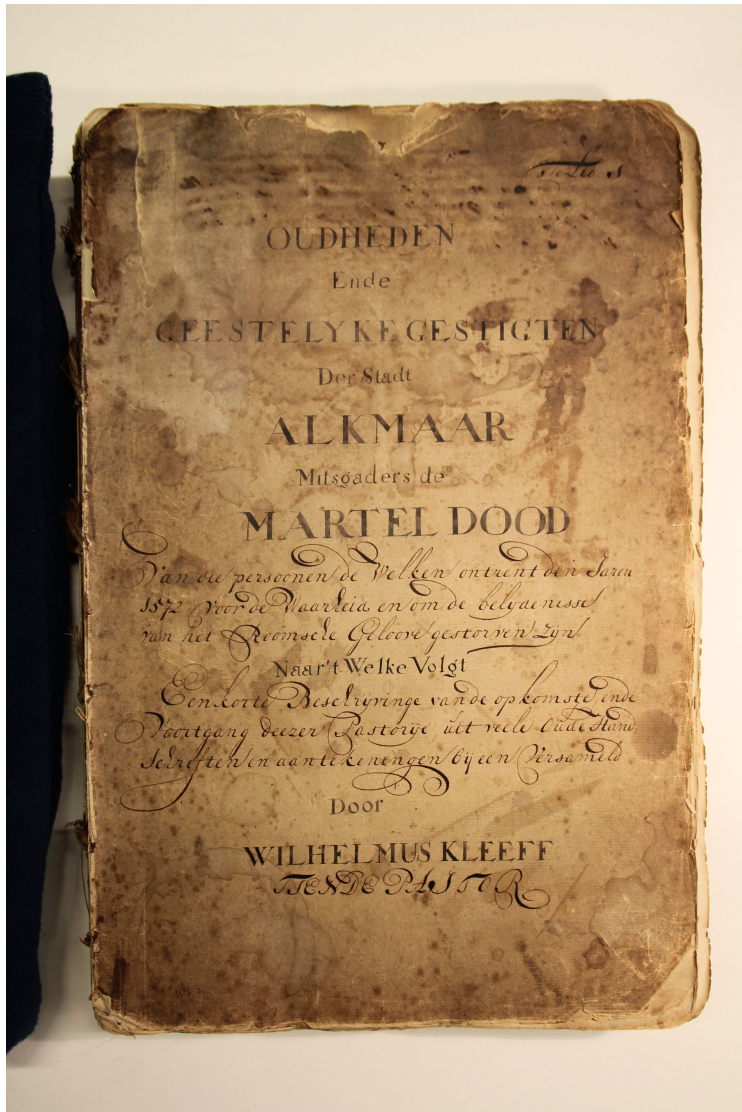 Folio 1
OUDHEDEN
Ende
GEESTELYKE GESTIGTEN
Der Stadt
ALKMAAR
Mitsgaders de
MARTEL DOOD
Van die persoonen de Welken ontrent den Jaren
1572 voor de Waarheid en om de belydenisse
van het Roomsche Geloove gestorven zyn
Naar't Welke Volgt
Een korte Beschrijvinge van de opkomste ende
Voortgang deezer Pastorije uit veele Oude Hand
schriften en aantekeningen bij een Versameld
Door
WILHELMUS KLEEFF
TIENDE PASTOR